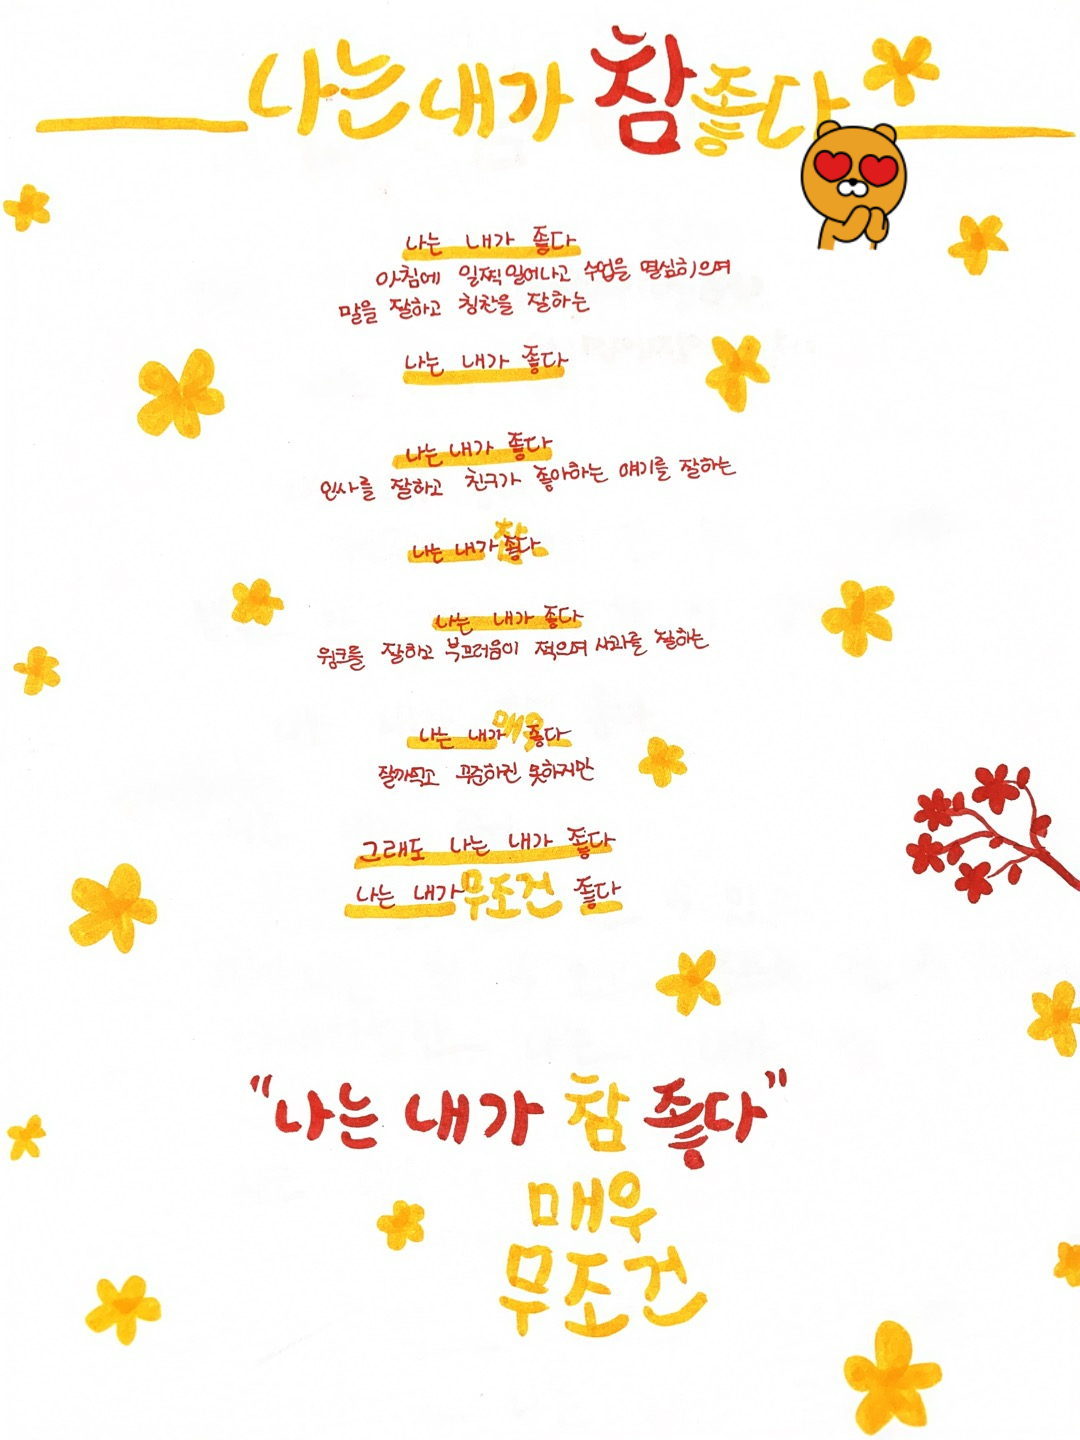 나는 내가 참 좋다
나는 내가 좋다
아침에 일찍 일어나고 수업을 열심히 하며
말을 잘하고 칭찬을 잘하는
나는 내가 좋다
나는 내가 좋다
인사를 잘하고 친구가 좋아하는 얘기를 잘하는
나는 내가 참 좋다
나는 내가 좋다
윙크를 잘하고 부끄러움이 적으며 사과를 잘하는
나는 내가 매우 좋다
잘까먹고 꾸준하진 못하지만
그래도 나는 내가 좋다
나는 내가 무조건 좋다
"나는 내가 참 좋다"
매우
무조건